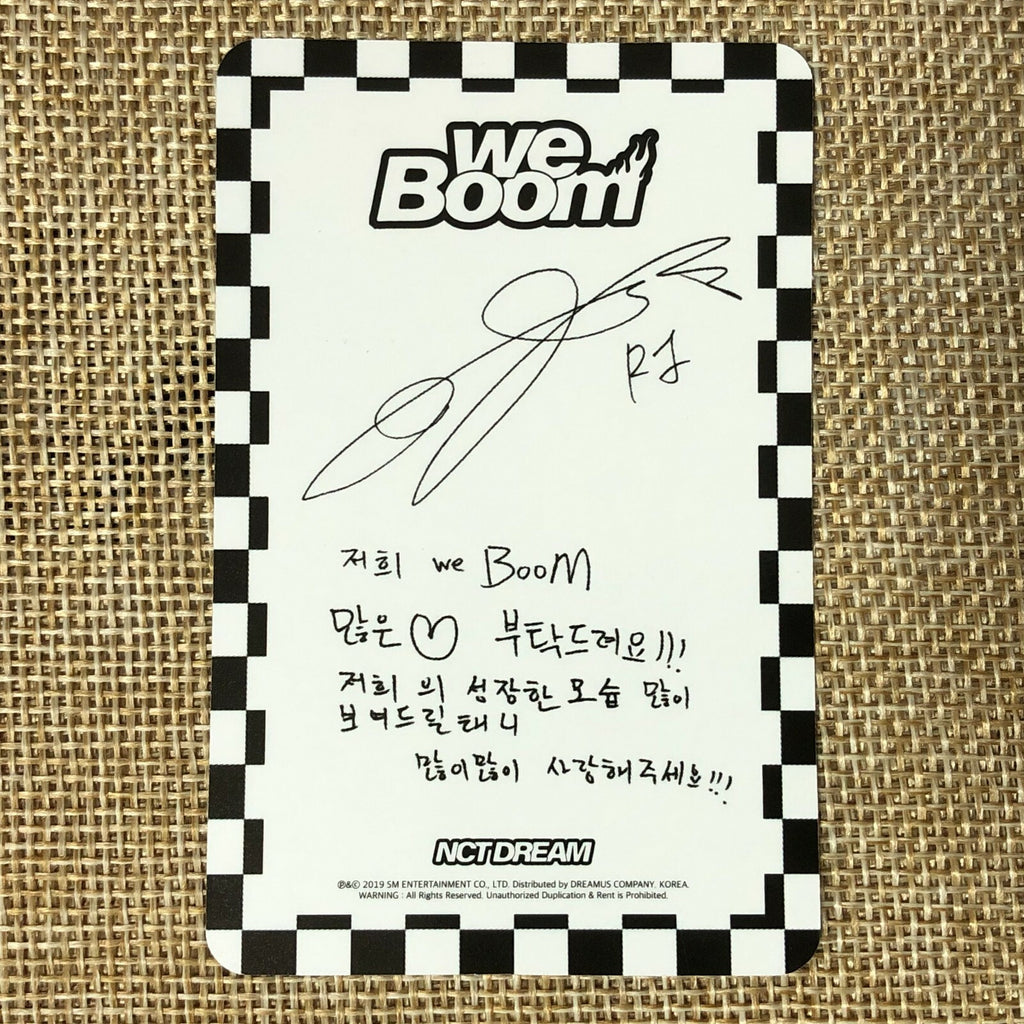 we
Boom
RJ
저희 we BooM
많은♡ 부탁드려요!!!
저희의 성장한 모습 많이
보여드릴태니
많이많이 사랑해주세요!!!
NCT DREAM
℗&© 2019 SM ENTERTAINMENT CO., LTD. Distributed by DREAMUS COMPANY. KOREA.
WARNING : All Rights Reserved. Unauthorized Duplication & Rent is Prohibited.